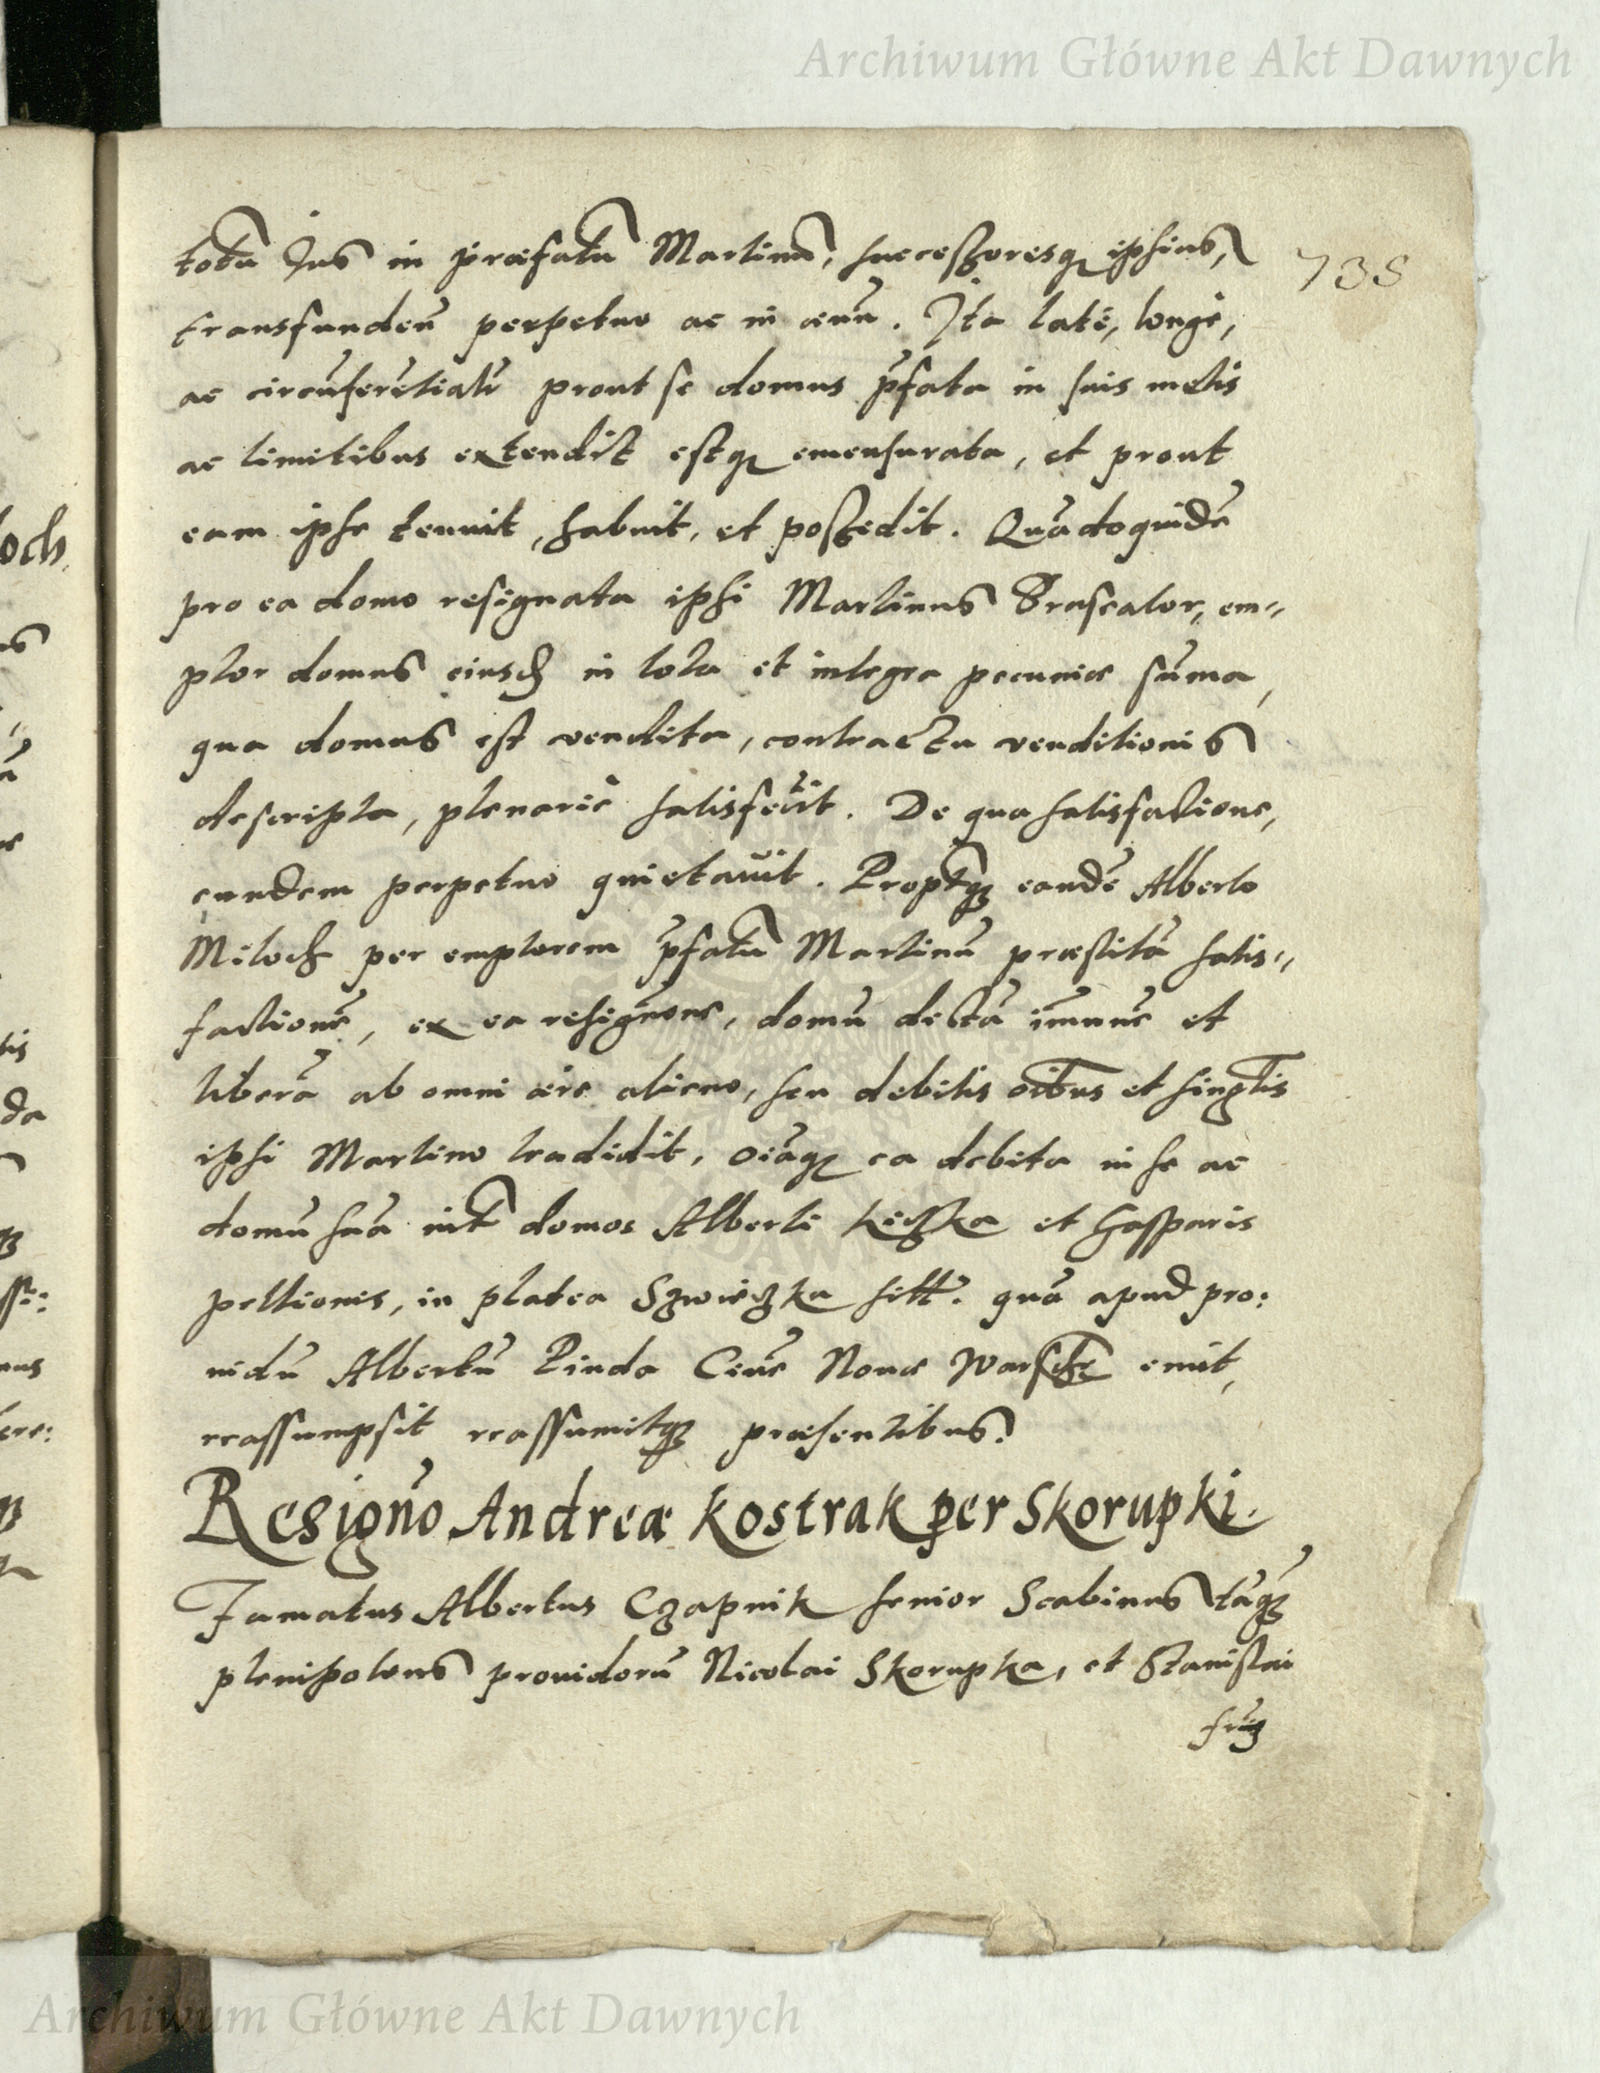 Archiwum Główne Akt Dawnych
totũ Jus in præfatũ Martinũ, successoresq; ipsius,
738
transfundeñ perpetuo ac in æuũ. Ita latè, longè,
ac circũferẽtialr̃ prout se domus p̃fata in suis metis
ac limitibus extendit estq; emensurata, et prout
eam ipse tenuit, habuit, et possedit. Quãdoquidẽ
pro ea domo resignata ipsi Martinus Bruscator, em=
ptor domus eiusd in tota et integra pecuniæ sũma,
qua domus est vendita, contractu venditionis
descripta, plenariè satisfecit. De qua satisfatione,
eundem perpetuo quietauit. Proptq; eandẽ Alberto
Miloch per emptorem p̃fatũ Martinũ præstitã satis=
factionẽ, ex ea resignõne, domũ dictã im̃unẽ et
liberã ab omni ære alieno, seu debitis oĩbus et singlis
ipsi Martino tradidit, oĩaq; ea debita in se ac
domũ suã int domos Alberti Kiczka et Gasparis
pellionis, in platea Szwieczka sitt. quã apud pro:
uidũ Albertũ Pinda Ciuẽ Nouæ Warsch emit,
reassumpsit reassumitq; præsentibus.
Resigño Andreæ Kostrak per Skorupki.
Famatus Albertus Czapnik senior Scabinus tãq;
plenipotens prouidorũ Nicolai Skorupka, et Stanislai
och
Archiwum Główne Akt Dawnych